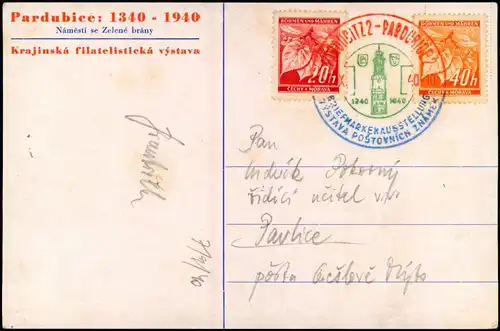 Pardubice: 1340 - 1940
Náměstí se Zelené brány
Krajinská filatelistická výstava
BÖHMEN UND MÄHREN
20h
ČECHY A MORAVA
BÖHMEN UND MÄHREN
40h
ČECHY A MORAVA
2-PARDUBICE 2
1340 1940
BRIEFMARKENAUSSTELLUNG
VÝSTAVA POŠTOVNÍCH ZNÁMEK
Pan
Ludvík Pokorný
řídící učitel v.v.
Pavlice
pošta